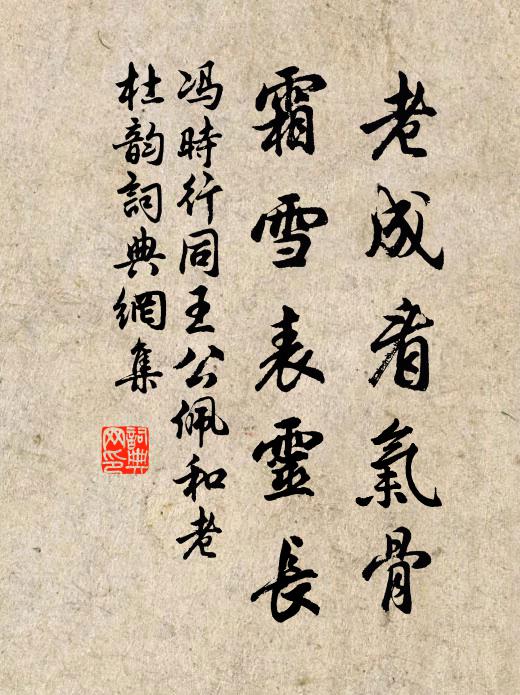 老成看氣骨
霜雪表靈長
馮時行同王公佩和老
杜韵詞典網集
詞典網印